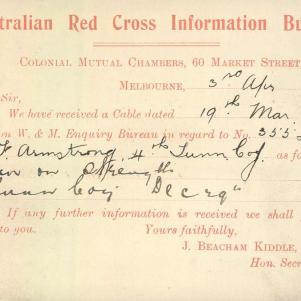 tralian Red Cross Information Bu
Colonial Mutual Chambers, 60 Market Street
Melbourne, 3rd Apr
Sir,
We have received a Cable dated 19th Mar
on W. & M. Enquiry Bureau in regard to No. 355
Armstrong, 4th Tunn Coy. as fo
on Strength
Coy Dec
If any further information is received we shall
to you.
Yours faithfully,
J. Beacham Kiddle,
Hon. Secr